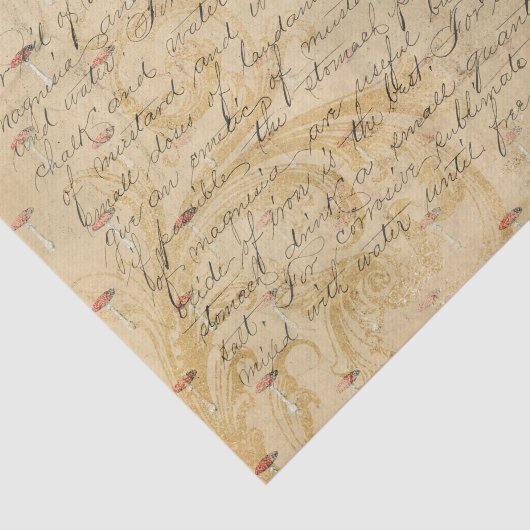 oil of
magnesia
and water.
chalk, and water
of mustard and
small doses of
Give an emetic of
if possible the stomach
of magnesia are useful
bride of iron is the best. For
stomach drink as small
salt. For corrosive sublimate
mixed with water until free